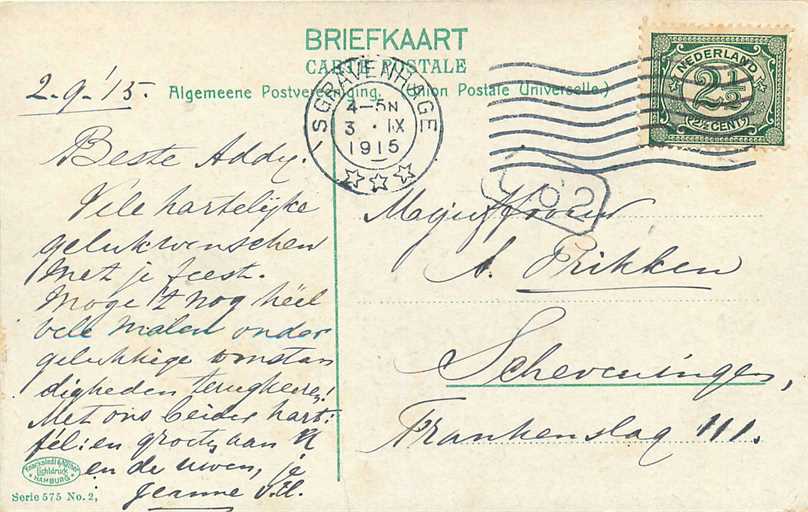 BRIEFKAART
CARTE POSTALE
Algemeene Postvereeniging. (Union Postale Universelle.)
NEDERLAND
2½
(2½ CENT)
'SGRAVENHAGE
4-5N
3 . IX
1915
2-9-'15.
Beste Addy.
Vele hartelijke
gelukwenschen
met je feest.
Moge 't nog heel
vele malen onder
gelukkige omstan
digheden terugkeeren!
Met ons beider hart:
fel: en groeten aan U
en de uwen, je
Jeanne v.d.
Mejuffrouw
A. Frikken
Scheveningen,
Frankenslag 111.
HAMBURG
Serie 575 No. 2,